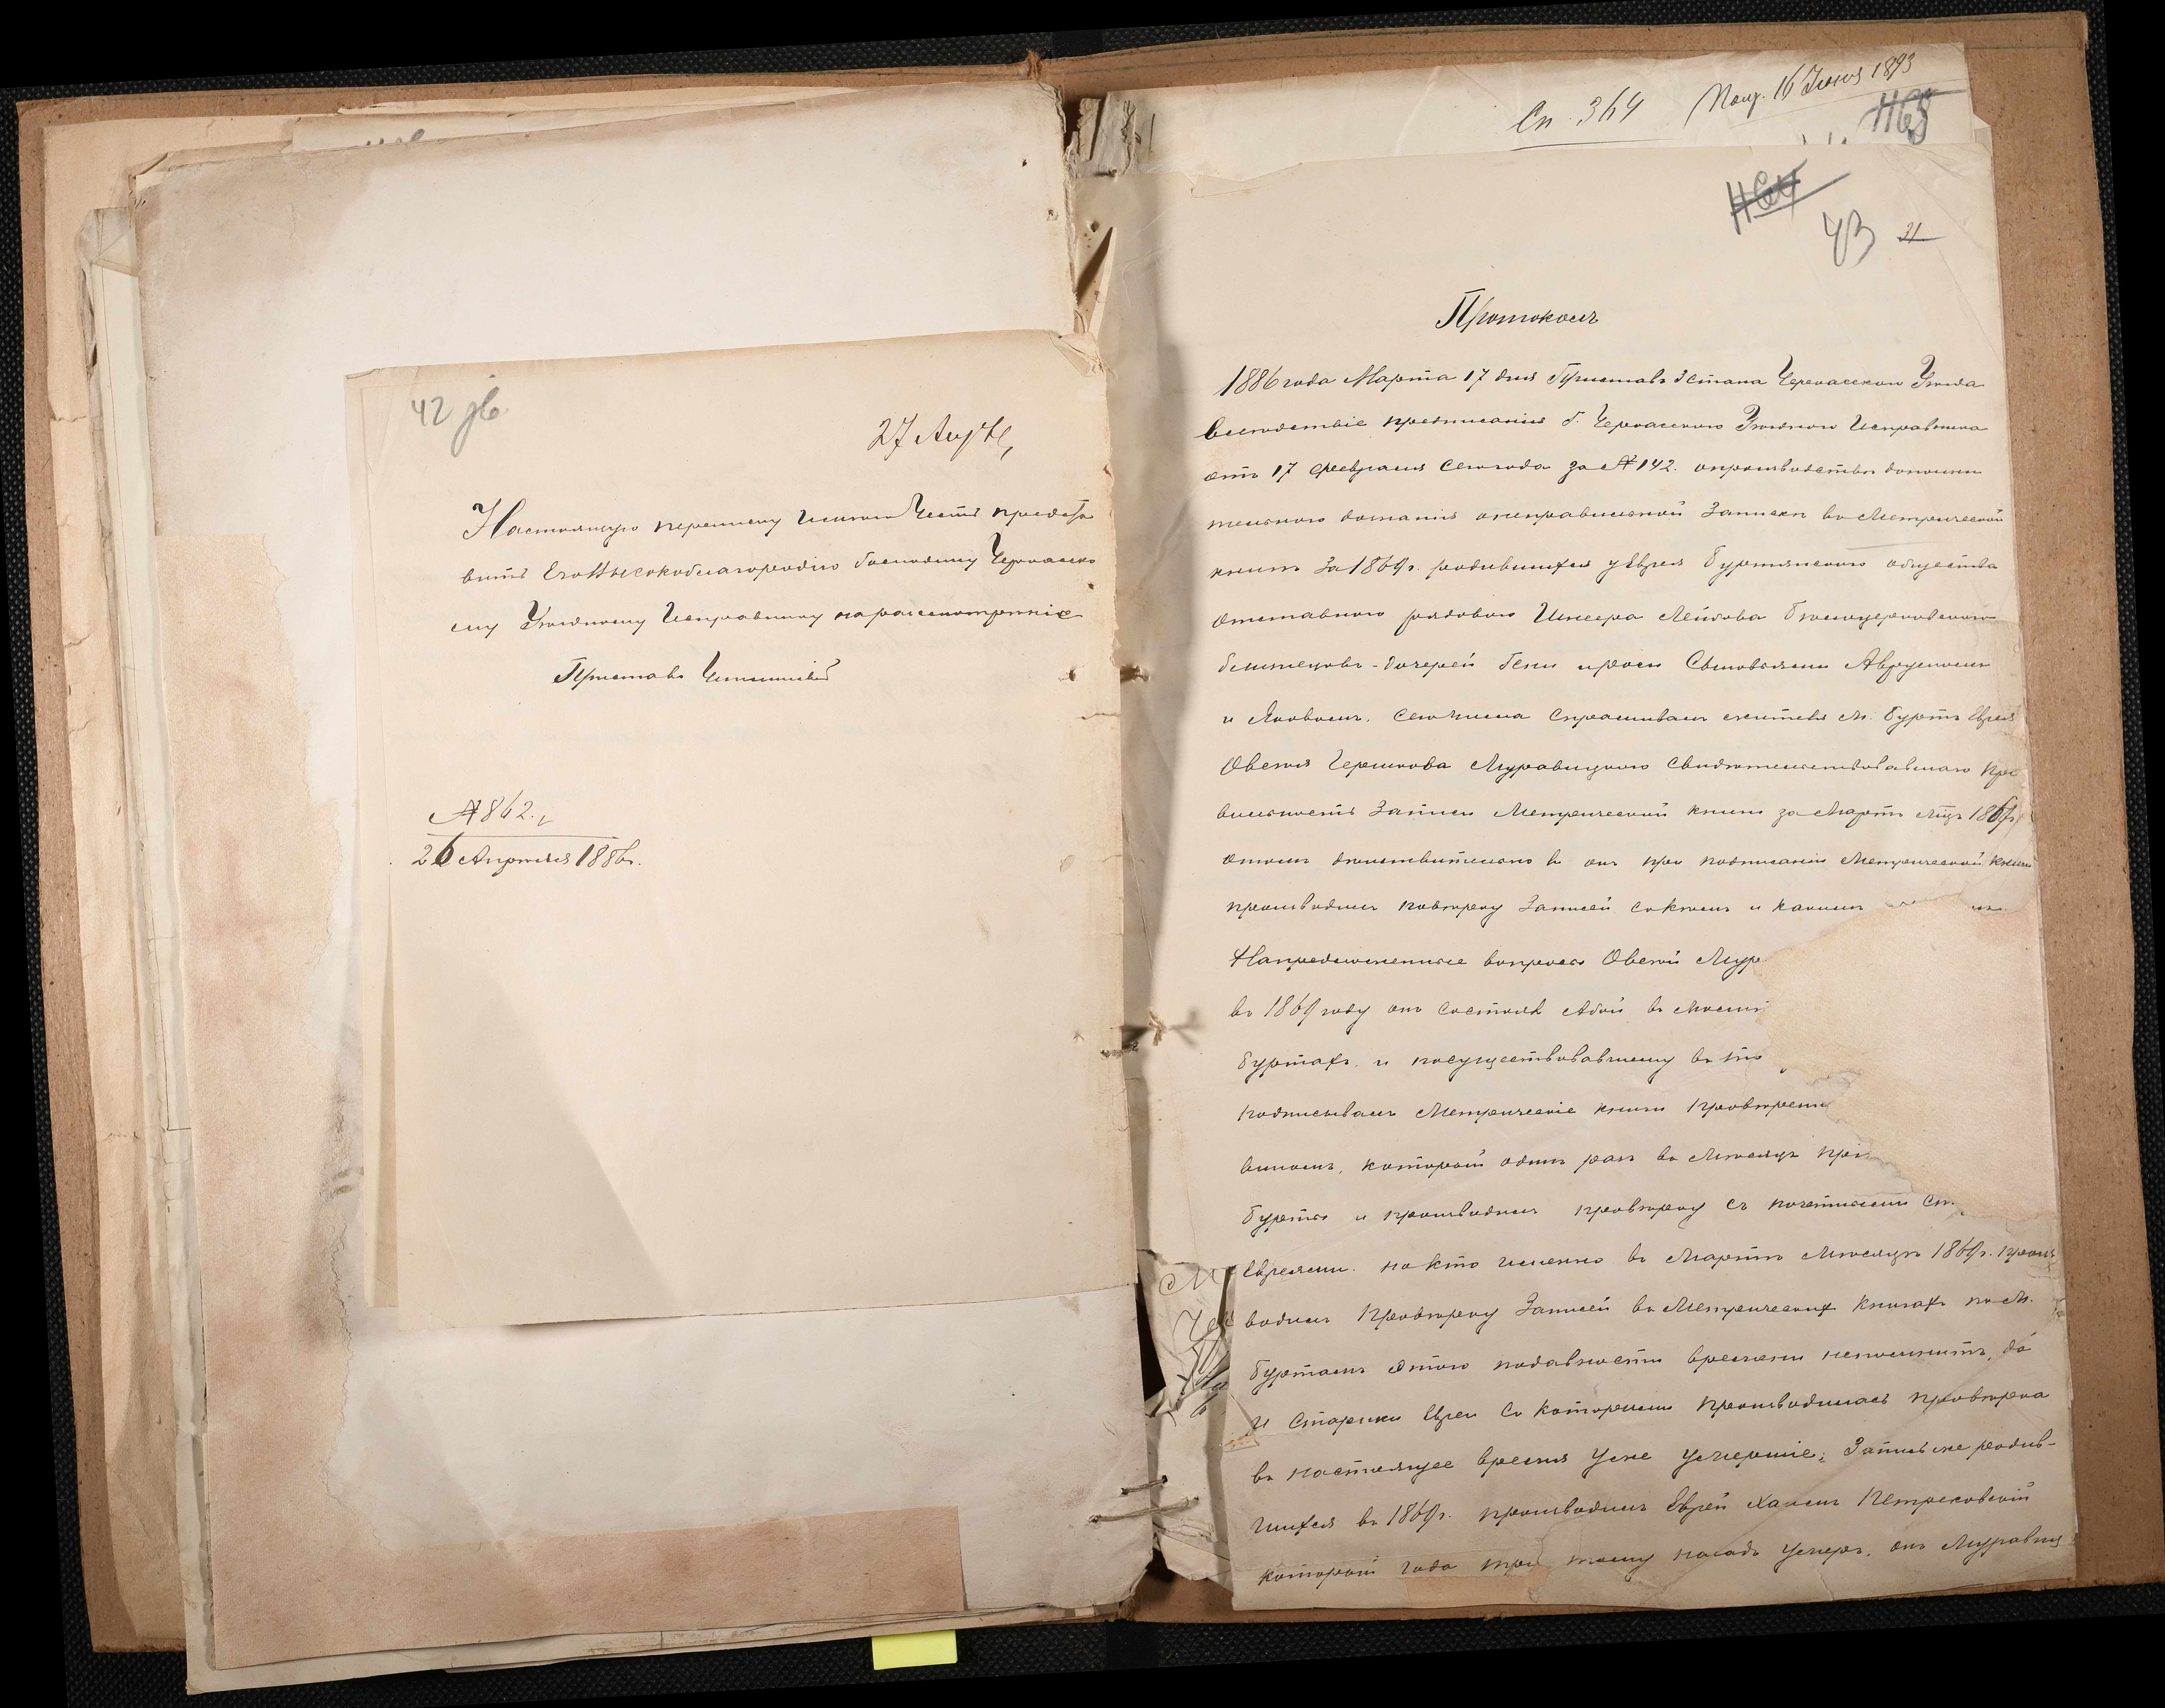 42 об.
27 Апрѣ
Настоящую переписку имѣю честь предста
вить Его Высокоблагородію Господину Черкасско
му Уѣздному Исправнику на разсмотрѣніе
Приставъ
№ 862.
26 Апрѣля 1886 г.
Сп. 364 Пол. 16 Іюня 1893
43 31
Протоколъ
1886 года Марта 17 дня Приставъ 3 стана Черкасскаго Уѣзда
вслѣдствіе предписанія г. Черкасскаго Уѣзднаго Исправника
отъ 17 Февраля сего года за № 142. о производствѣ дополни
тельнаго дознанія о неправильной записки въ Метрической
книгѣ за 1869 г. родившихся у Еврея Буртянскаго общества
отставнаго рядоваго Шлера Лейбова Бѣлоцерковскаго
близнецовъ - дочерей сыновьями Аврумомъ
и Яковомъ. сего числа спрашивалъ жителя м. Буртъ Еврея
Овсея Гершкова Муравицкаго свидѣтельствовавшаго пра
вильность записи Метрической книги за Мартъ мцъ 1869 г.
о томъ дѣйствительно ли онъ при подписаніи Метрической книги
производилъ повѣрку записей съ кѣмъ и какимъ
На предложенные вопросы Овсей Мур
въ 1869 году онъ состоялъ въ
Буртахъ и по существовавшему въ то
подписывалъ Метрическіе книги провѣрен
который одинъ разъ въ мѣсяцъ прі
Бурты и производилъ провѣрку съ почетными ст
Евреями. но кто именно въ Мартѣ мѣсяцѣ 1869 г. произ
водилъ провѣрку записей въ Метрическихъ книгахъ по м.
Буртамъ этого по давности времени непомнитъ, да
и старики Евреи съ которыми производилась провѣрка
въ настоящее время уже умершіе; запись же родив-
шихся въ 1869 г. производилъ Еврей Хаимъ Петриковскій
который года три тому назадъ умеръ, онъ Муравиц